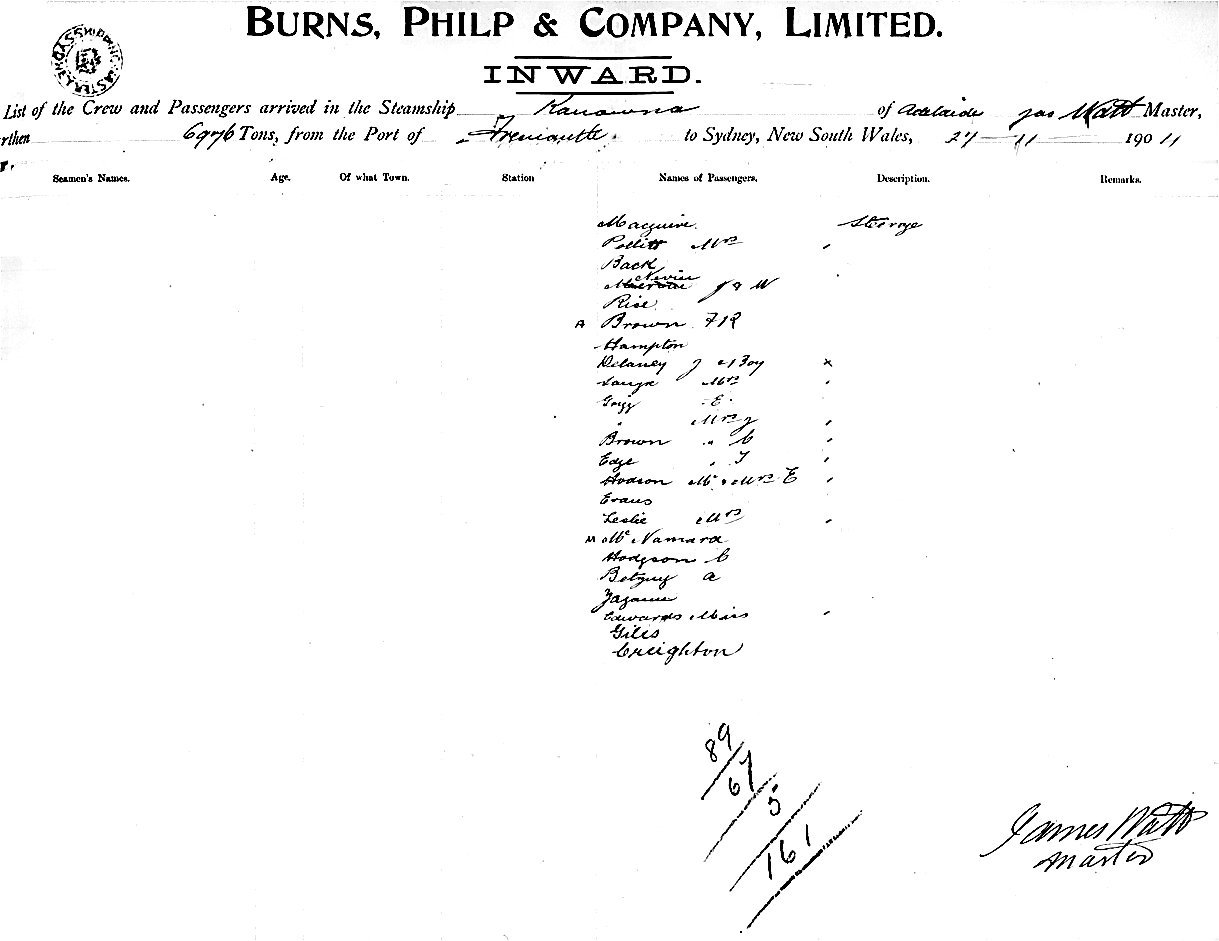 BURNS, PHILP & COMPANY, LIMITED.
INWARD.
List of the Crew and Passengers arrived in the Steamship Kanowna of Adelaide Jas Watt Master,
rthen 6976 Tons, from the Port of Fremantle. to Sydney, New South Wales, 27 - 11 190 11
Seamen's Names. Age. Of what Town. Station Names of Passengers. Description. Remarks.
Macguire. Steerage
Pollitt Mrs "
Back
Nevin J & W
Rice
A Brown F R
Hampton
Delaney J & Boy x
Mrs "
Grigg E.
" Mrs J "
Brown " C "
Edge " T "
Hodson Mr & Mrs E "
Evans
Leslie Mrs "
M McNamara
Hodgson C
A
Edwards Miss "
Giles
Creighton
89
67
5
161
James Watt
Master